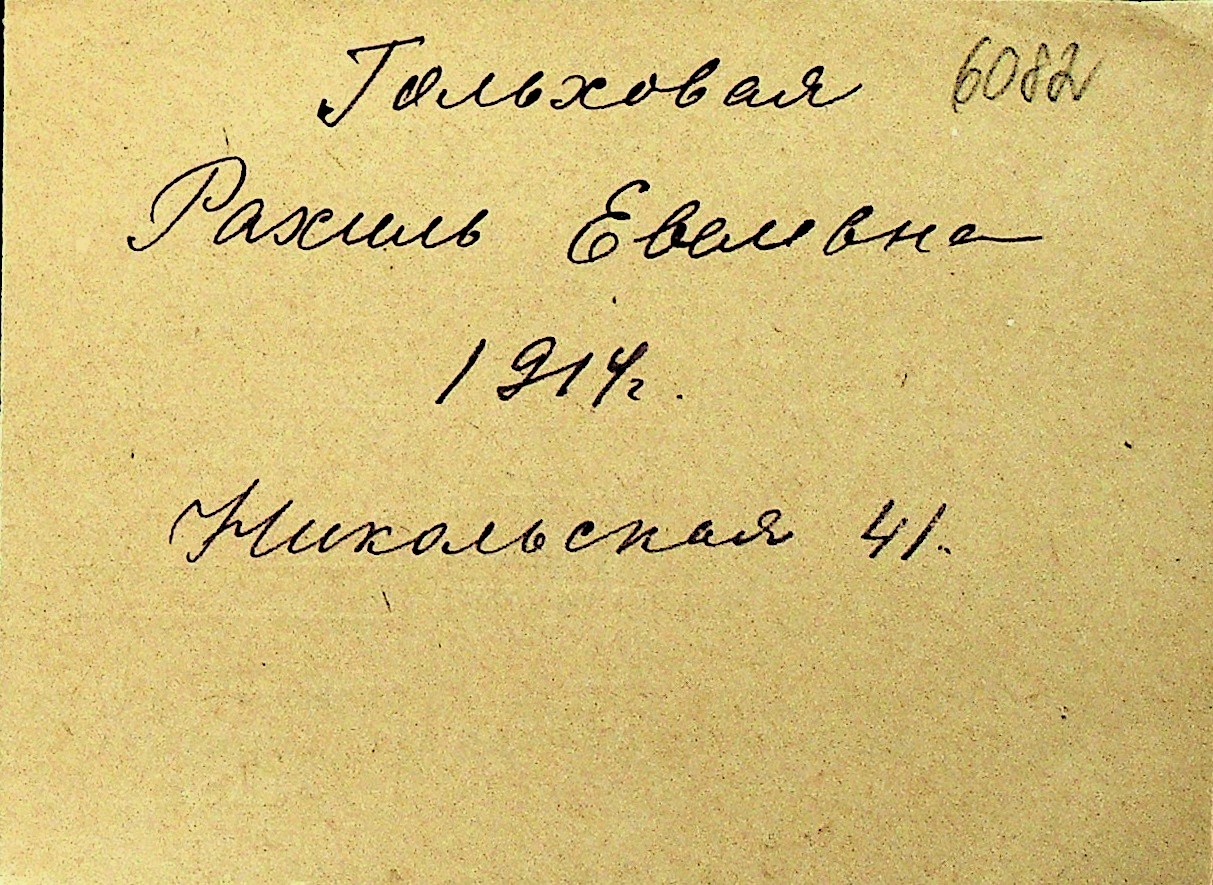 Гольховая 6082
Рахиль
1914г.
Никольская 41.